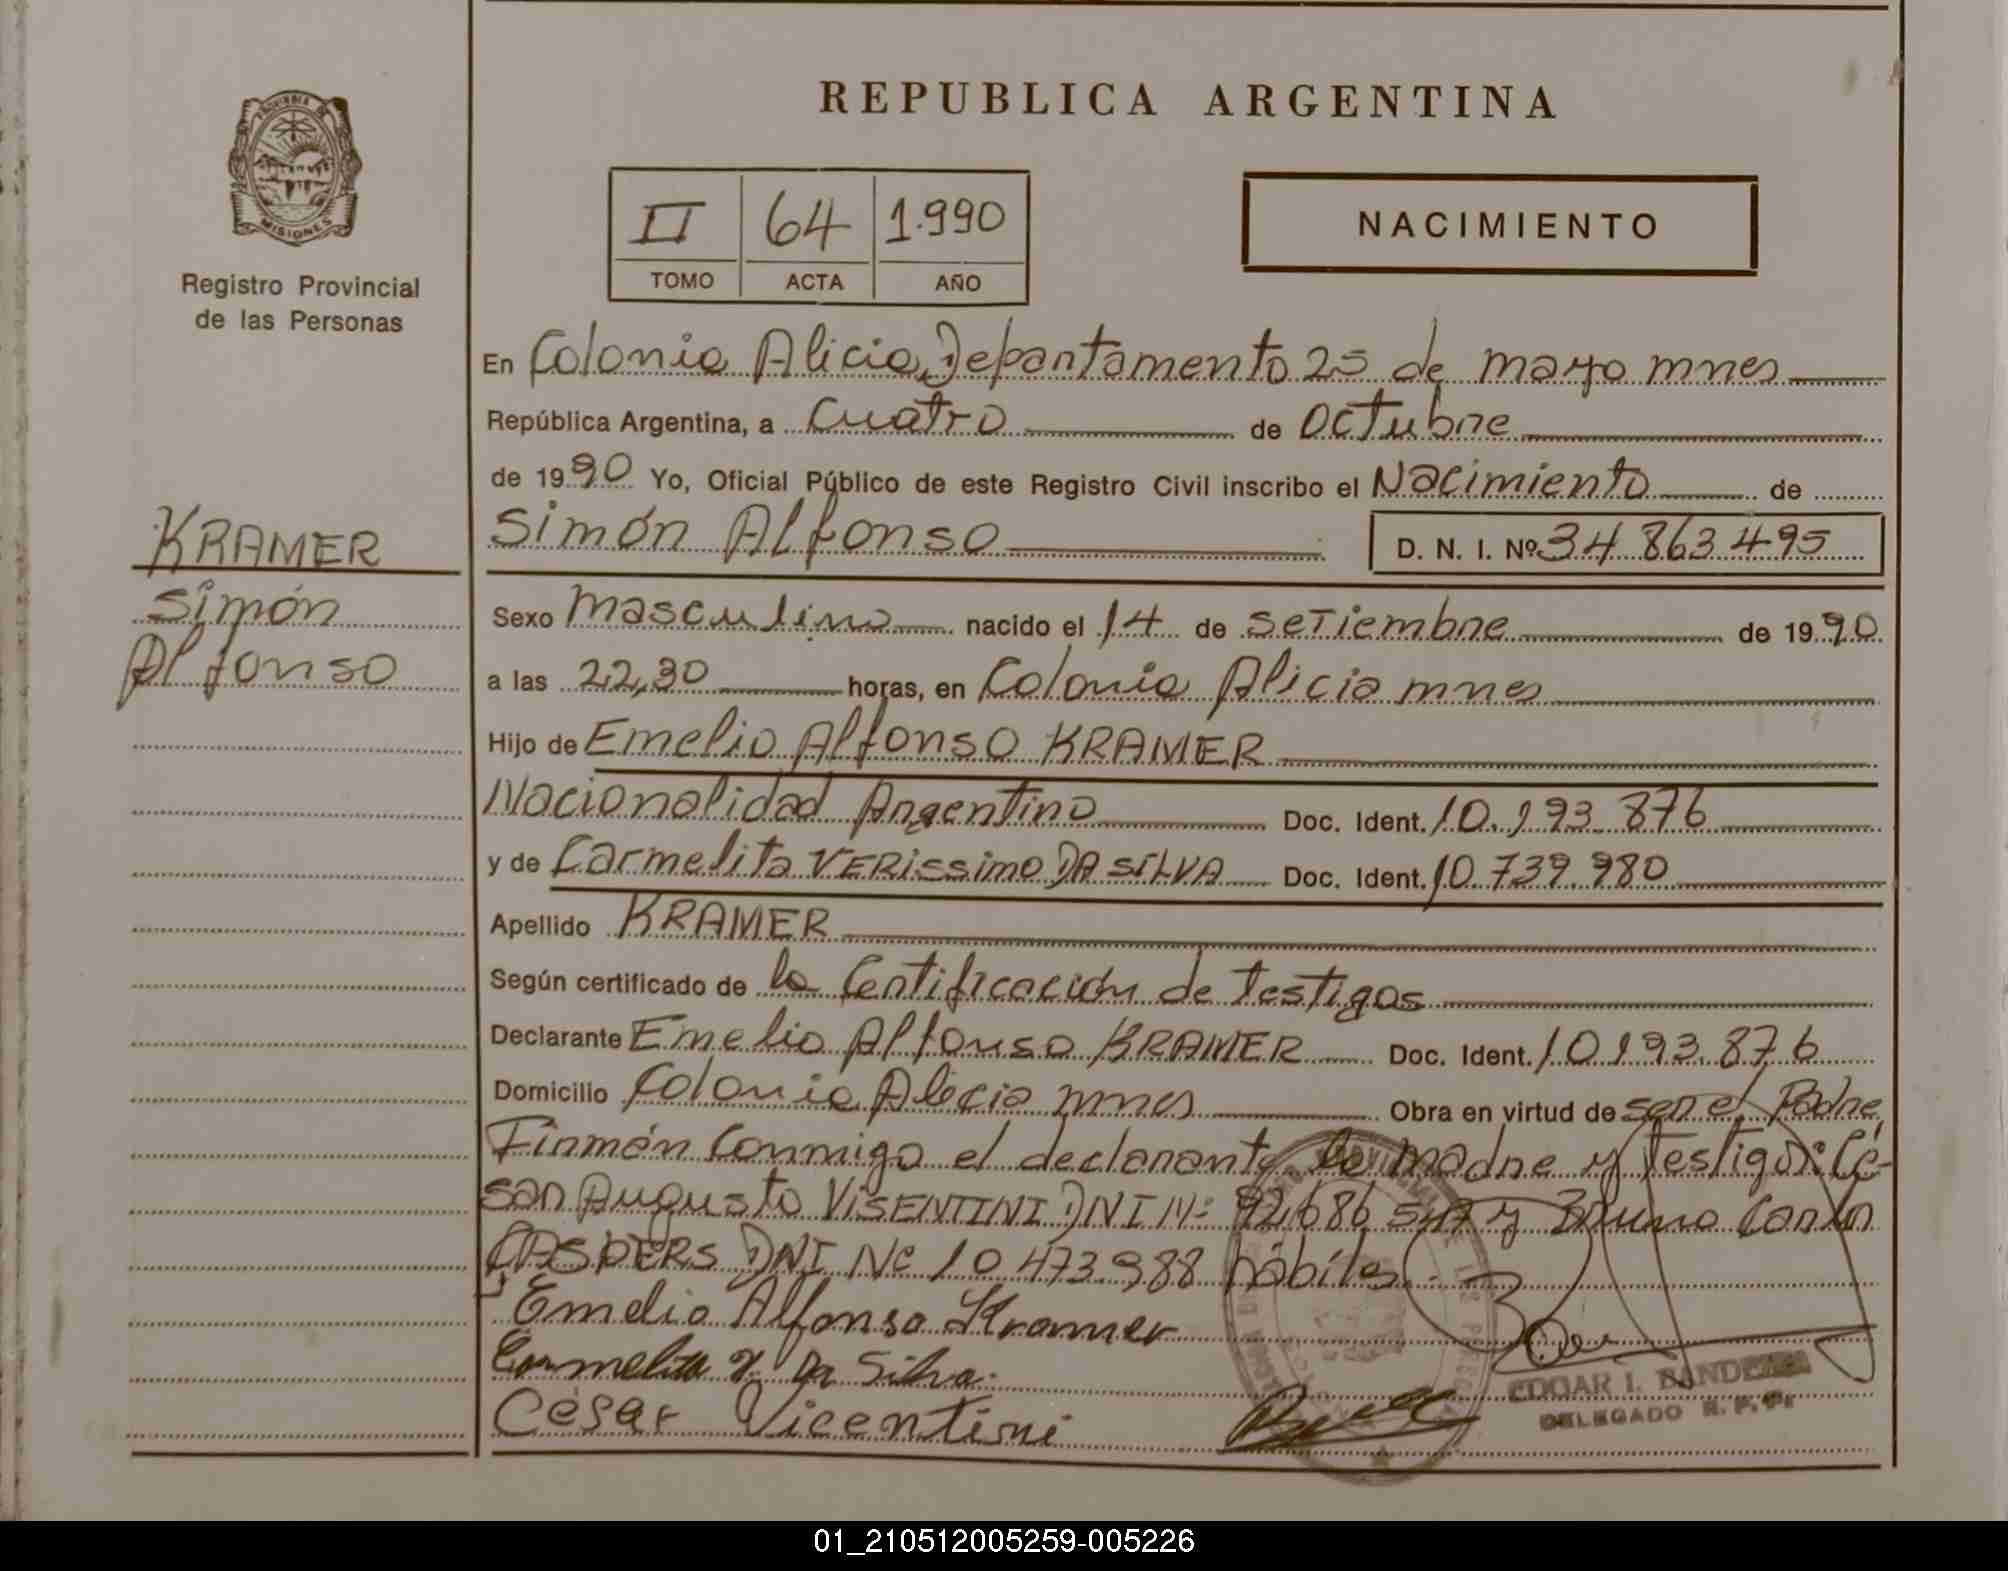 REPUBLICA ARGENTINA
PROVINCIA DE
MISIONES
Registro Provincial
de las Personas
II 64 1.990
TOMO ACTA AÑO
NACIMIENTO
En Colonia Alicia, Departamento 25 de mayo mnes
República Argentina, a cuatro de octubre
de 1990 Yo, Oficial Público de este Registro Civil inscribo el Nacimiento de
Simón Alfonso D. N. I. Nº 34 863 495
KRAMER
Simón
Alfonso
Sexo masculino nacido el 14 de setiembre de 1990
a las 22,30 horas, en Colonia Alicia mnes
Hijo de Emelio Alfonso KRAMER
Nacionalidad Argentino Doc. Ident. 10.193.876
y de Carmelita VERissimo DA SILVA Doc. Ident. 10.739.980
Apellido KRAMER
Según certificado de la Certificación de testigos
Declarante Emelio Alfonso KRAMER Doc. Ident. 10193.876
Domicilio Colonia Alicia mnes Obra en virtud de ser el Padre
Firmán conmigo el declarante, la madre y testigos: Cé-
sar Augusto VISENTINI DNI Nº 92.686 y Bruno Carlos
CASPERS DNI Nº 10 473.988 hábiles.
Emelio Alfonso Kramer
Carmelita V. Da Silva.
César Vicentini
EDGAR I. BANDEIRA
DELEGADO R. P. P.
01_210512005259-005226